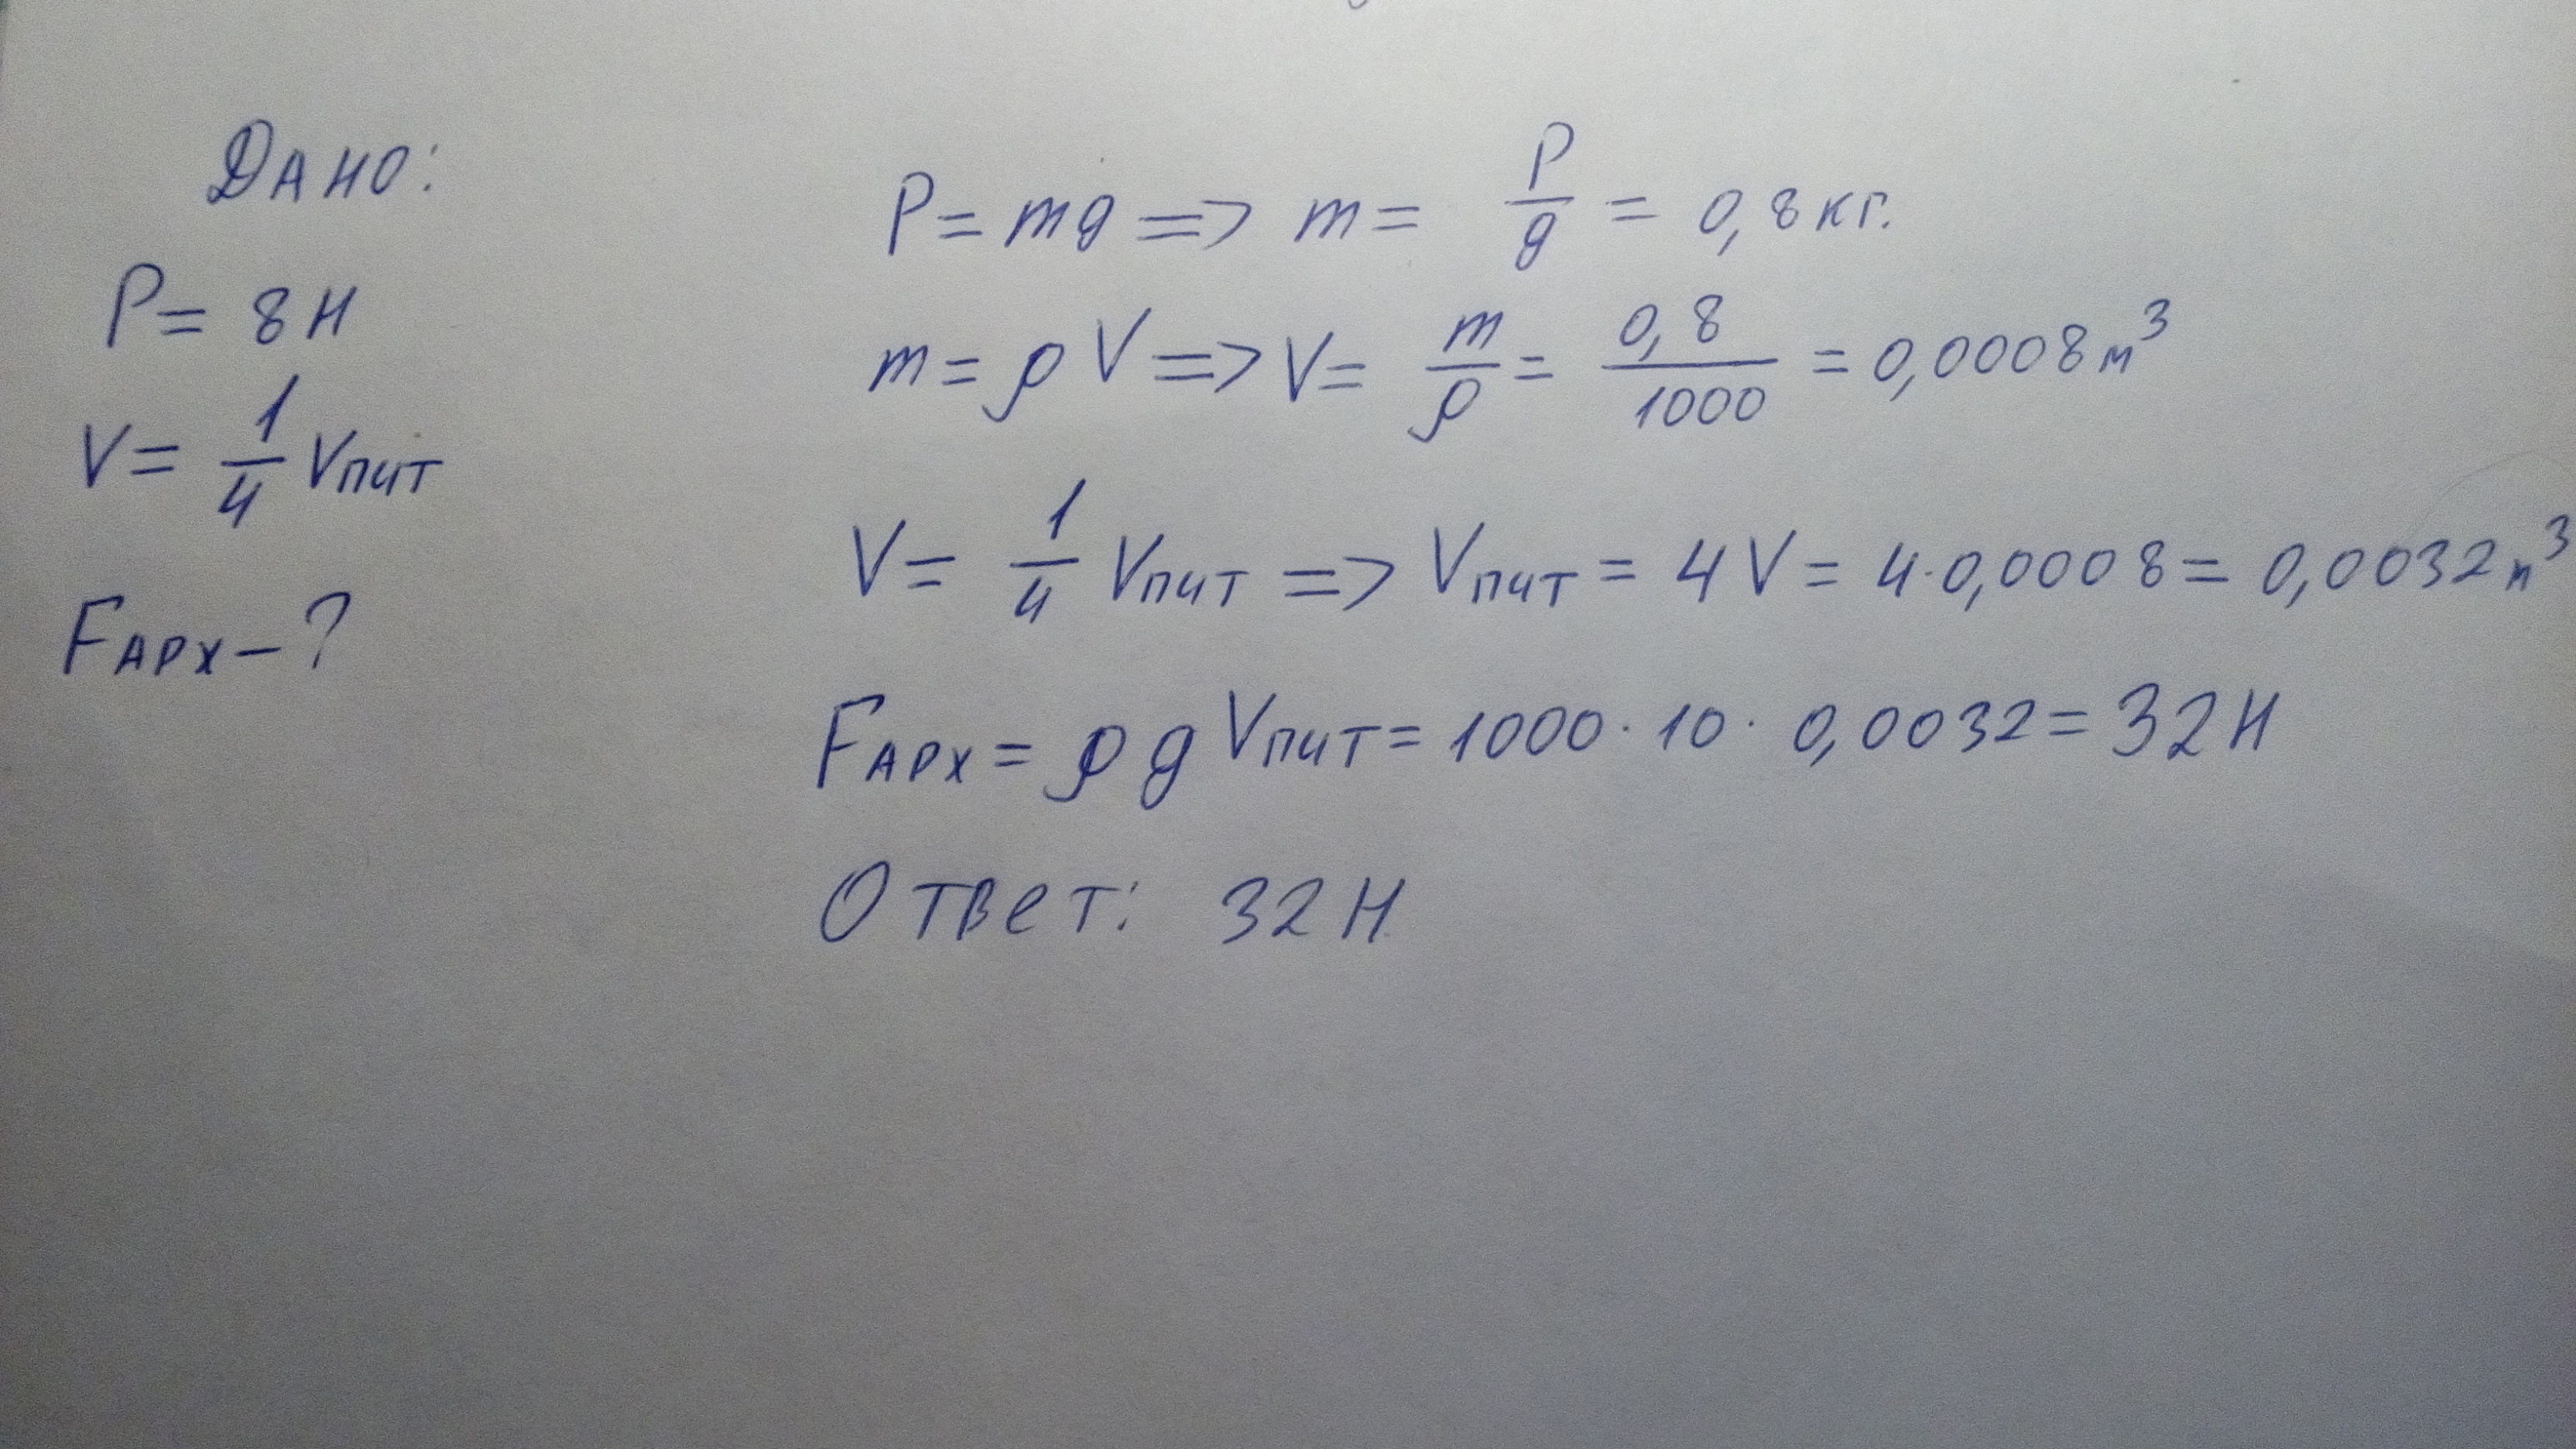 Дано:
P = 8 Н
V = 1/4 Vпит
Fарх - ?
P = mg => m = P/g = 0,8 кг.
m = ρV => V = m/ρ = 0,8/1000 = 0,0008 м³
V = 1/4 Vпит => Vпит = 4V = 4·0,0008 = 0,0032 м³
Fарх = ρg Vпит = 1000 · 10 · 0,0032 = 32 Н
Ответ: 32 Н